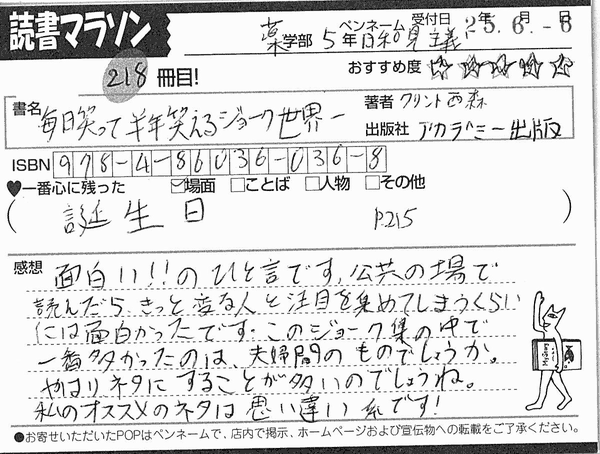 読書マラソン
薬学部 5年 ペンネーム 日和見主義 受付日 25年6月-6日
218冊目!
おすすめ度 ☆☆☆☆☆
書名 毎日笑って半年笑えるジョーク世界一
著者 クリント西森
出版社 アカデミー出版
ISBN 978-4-86036-036-8
♥一番心に残った ☑場面 □ことば □人物 □その他
( 誕生日 P.215 )
感想 面白い!!のひと言です。公共の場で
読んだら、きっと変な人と注目を集めてしまうくらい
には面白かったです。このジョーク集の中で
一番多かったのは、夫婦間のものでしょうか。
やはりネタにすることが多いのでしょうね。
私のオススメのネタは思い違い系です!
●お寄せいただいたPOPはペンネームで、店内で掲示、ホームページおよび宣伝物への転載をご了承ください。